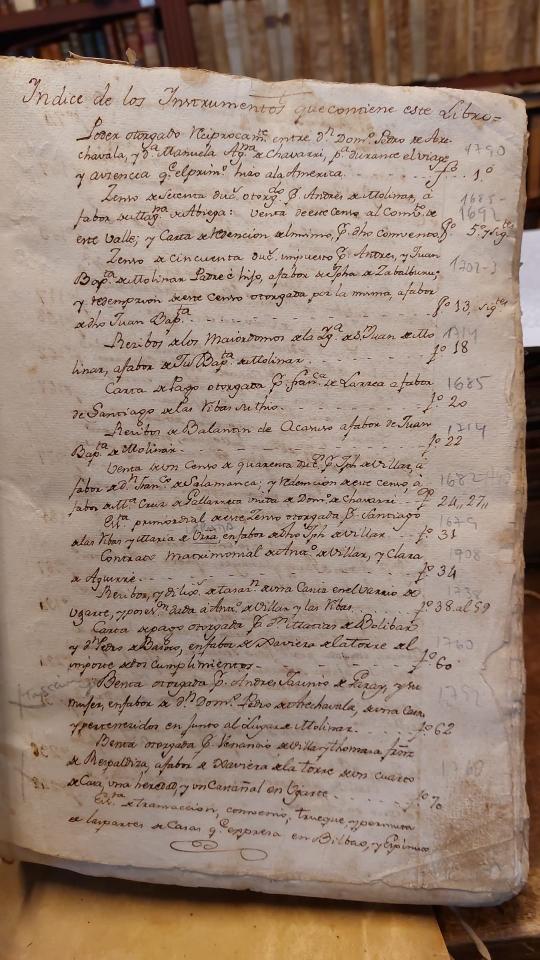 Indice de los Instrumentos que contiene este Libro=
Poder otorgado Reciprocam.te entre d.n Dom.o Pedro de Are-
chavala, y d.a Manuela Ag.na de Chavarri, p.a durante el viage 1790
y avsencia q.e el prim.o hizo ala America. . . . . . . f.o 1.o
Zenso de Setenta duc.s otorg.do P. Andres de Molinar, à 1685-
fabor de Mag.na de Abiega: Venta de este Censo al Comb.to de 1692
este Valle; y Carta de Redencion del mismo, P. dho Convento f.o 5.o y sig.tes
Zenso de Cincuenta duc.s impuesto P. Andres, y Juan
Bap.ta de Molinar Padre è hijo, afabor de Jpha de Zabalburu, 1702-3
y redempcion de este censo otorgada por la misma, afabor
de dho Juan Bap.ta . . . . . . . f.o 13, sig.tes
Recibos de los Maiordomos de la Yg.a de S. Juan de Mo 1714
linar, afabor de Ju.n Bap.ta de Molinar. . . . . . . f.o 18
Carta de Pago otorgada P. Fran.ca de Larrea afabor 1685
de Santiago de las Ribas su thio. . . . . . . f.o 20
Recibos de Balantin de Acasuso afabor de Juan 1714
Bap.ta de Molinar. . . . . . . f.o 22
Venta de un Censo de quarenta duc.s P. Jph de Villar, à
fabor de D.n Fran.co de Salamanca; y Redencion de este censo à 1682
fabor de M.a Cruz de Pallarreta viuda de Dom.o de Chavarri f.o 24,,27,,
Es.ra primordial de este Zenso otorgada P. Santiago 1679
de las Ribas y Maria de Oria, enfabor de dho Jph de Villar. . . . f.o 31
Contrato Matrimonial de Ant.o de Villar, y Clara 1908
de Aguirre. . . . . . . f.o 34
Recibos, y dilig.s de tasa.n de una Casa en el Varrio de 1738
Ugarte, y poses.n dada à Ant.o de Villar y las Ribas. . . . f.o 38. al 59
Carta de pago otorgada P. d.n Matias de Balibar
y d.n Pedro de Basoo, enfabor de Xaviera de la torre del 1760
importe de dos Cumplimientos- . . . . . . . f.o 60
Benta otorgada P. Andres Jacinto de Garay, y su
muger, enfabor de d.n Dom.o Pedro de Arechavala, de una Casa,
y pertenecidos en junto al Lugar de Molinar. . . . f.o 62
Benta otorgada P. Venancio de Villar y Thomasa
de Respaldiza, afabor de Xaviera de la torre de un cuarto
de Casa, una heredad, y un Castañal en Ugarte . . . . f.o 70
Es.ra de transaccion, convenio, trueque, y permuta
de las partes de Casas q.e expresa en Bilbao, y Espinosa